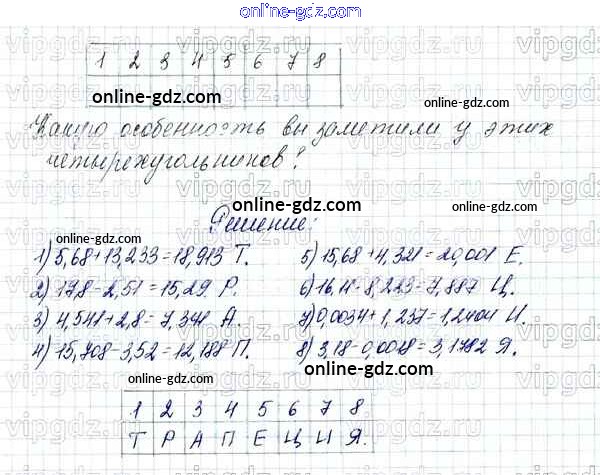 online-gdz.com
1 2 3 4 5 6 7 8
online-gdz.com online-gdz.com
Какую особенность вы заметили у этих
четырехугольников?
online-gdz.com
Решение:
online-gdz.com
1) 5,68+13,233=18,913 Т. 5) 15,68+4,321=20,001 Е.
2) 17,8-2,51=15,29 Р. 6) 16,11-8,223=7,887 Ц.
3) 4,541+2,8=7,341 А. 7) 0,0034+1,237=1,2404 И.
4) 15,708-3,52=12,188 П. 8) 3,18-0,0018=3,1782 Я.
online-gdz.com online-gdz.com
1 2 3 4 5 6 7 8
Т Р А П Е Ц И Я.
online-gdz.com